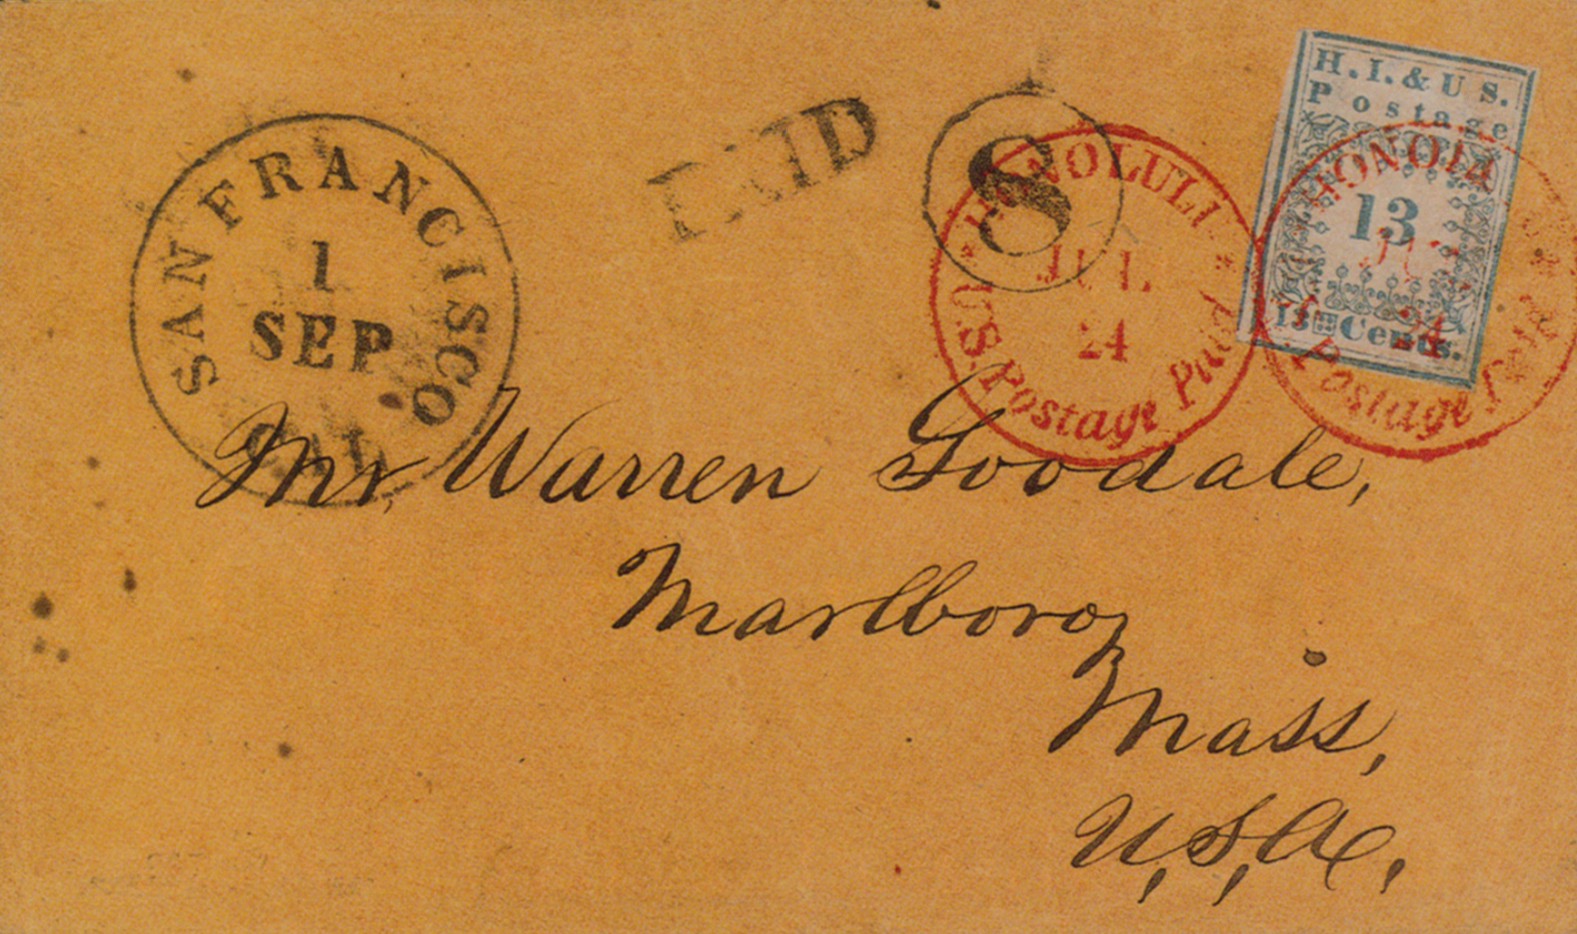 SAN FRANCISCO
1
SEP
CAL
PAID
8
HONOLULU
JUL
24
U.S. Postage Paid
H.I. & U S.
Postage
13
13 Cents.
HONOLULU
24
Postage Paid
Mr. Warren Goodale,
Marlboro,
Mass,
U,S,A,